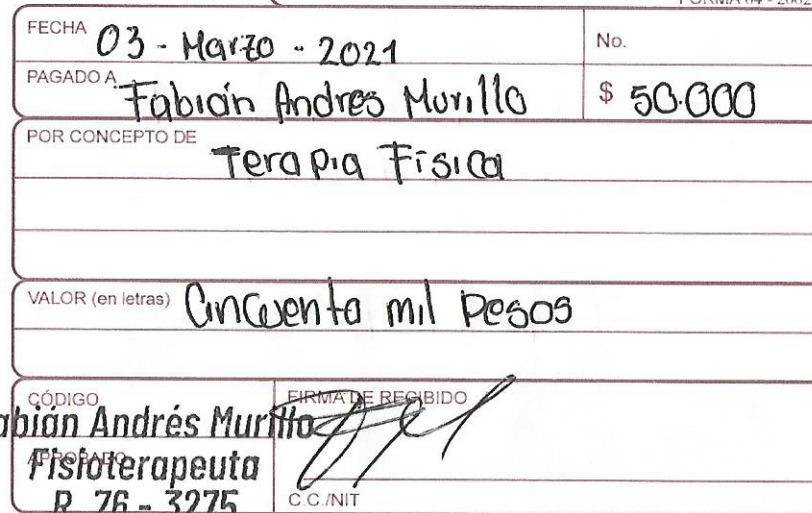 FORMA 04 - 2002
FECHA 03 - Marzo - 2021
No.
PAGADO A Fabián Andres Murillo
$ 50.000
POR CONCEPTO DE Terapia Física
VALOR (en letras) Cincuenta mil Pesos
CÓDIGO
FIRMA DE RECIBIDO
abián Andrés Murillo
APROBADO
Fisioterapeuta
R 76 - 3275
C.C./NIT